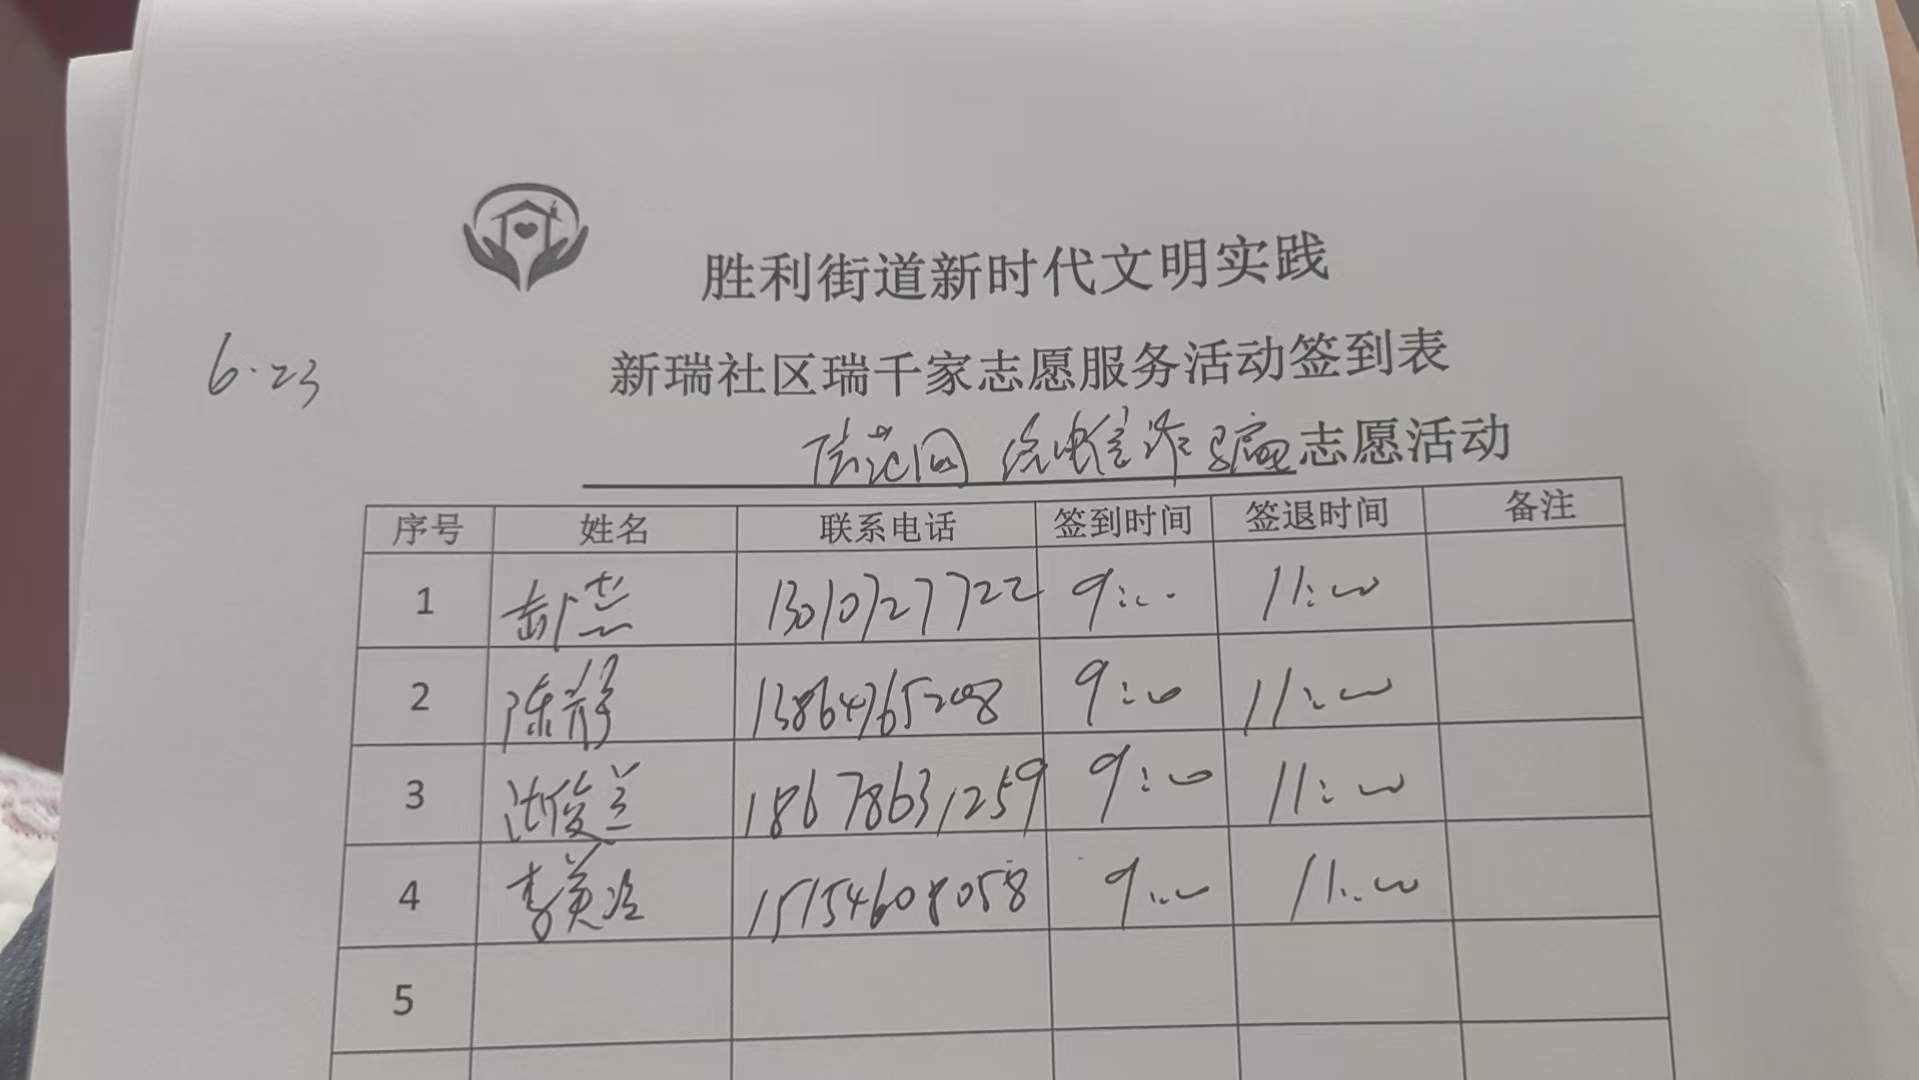 胜利街道新时代文明实践
6.23
新瑞社区瑞千家志愿服务活动签到表
防范网络电信诈骗志愿活动
序号 姓名 联系电话 签到时间 签退时间 备注
1 13010727722 9:00 11:00
2 陈静 13864765208 9:00 11:00
3 18678631259 9:00 11:00
4 李英 15154608058 9:00 11:00
5